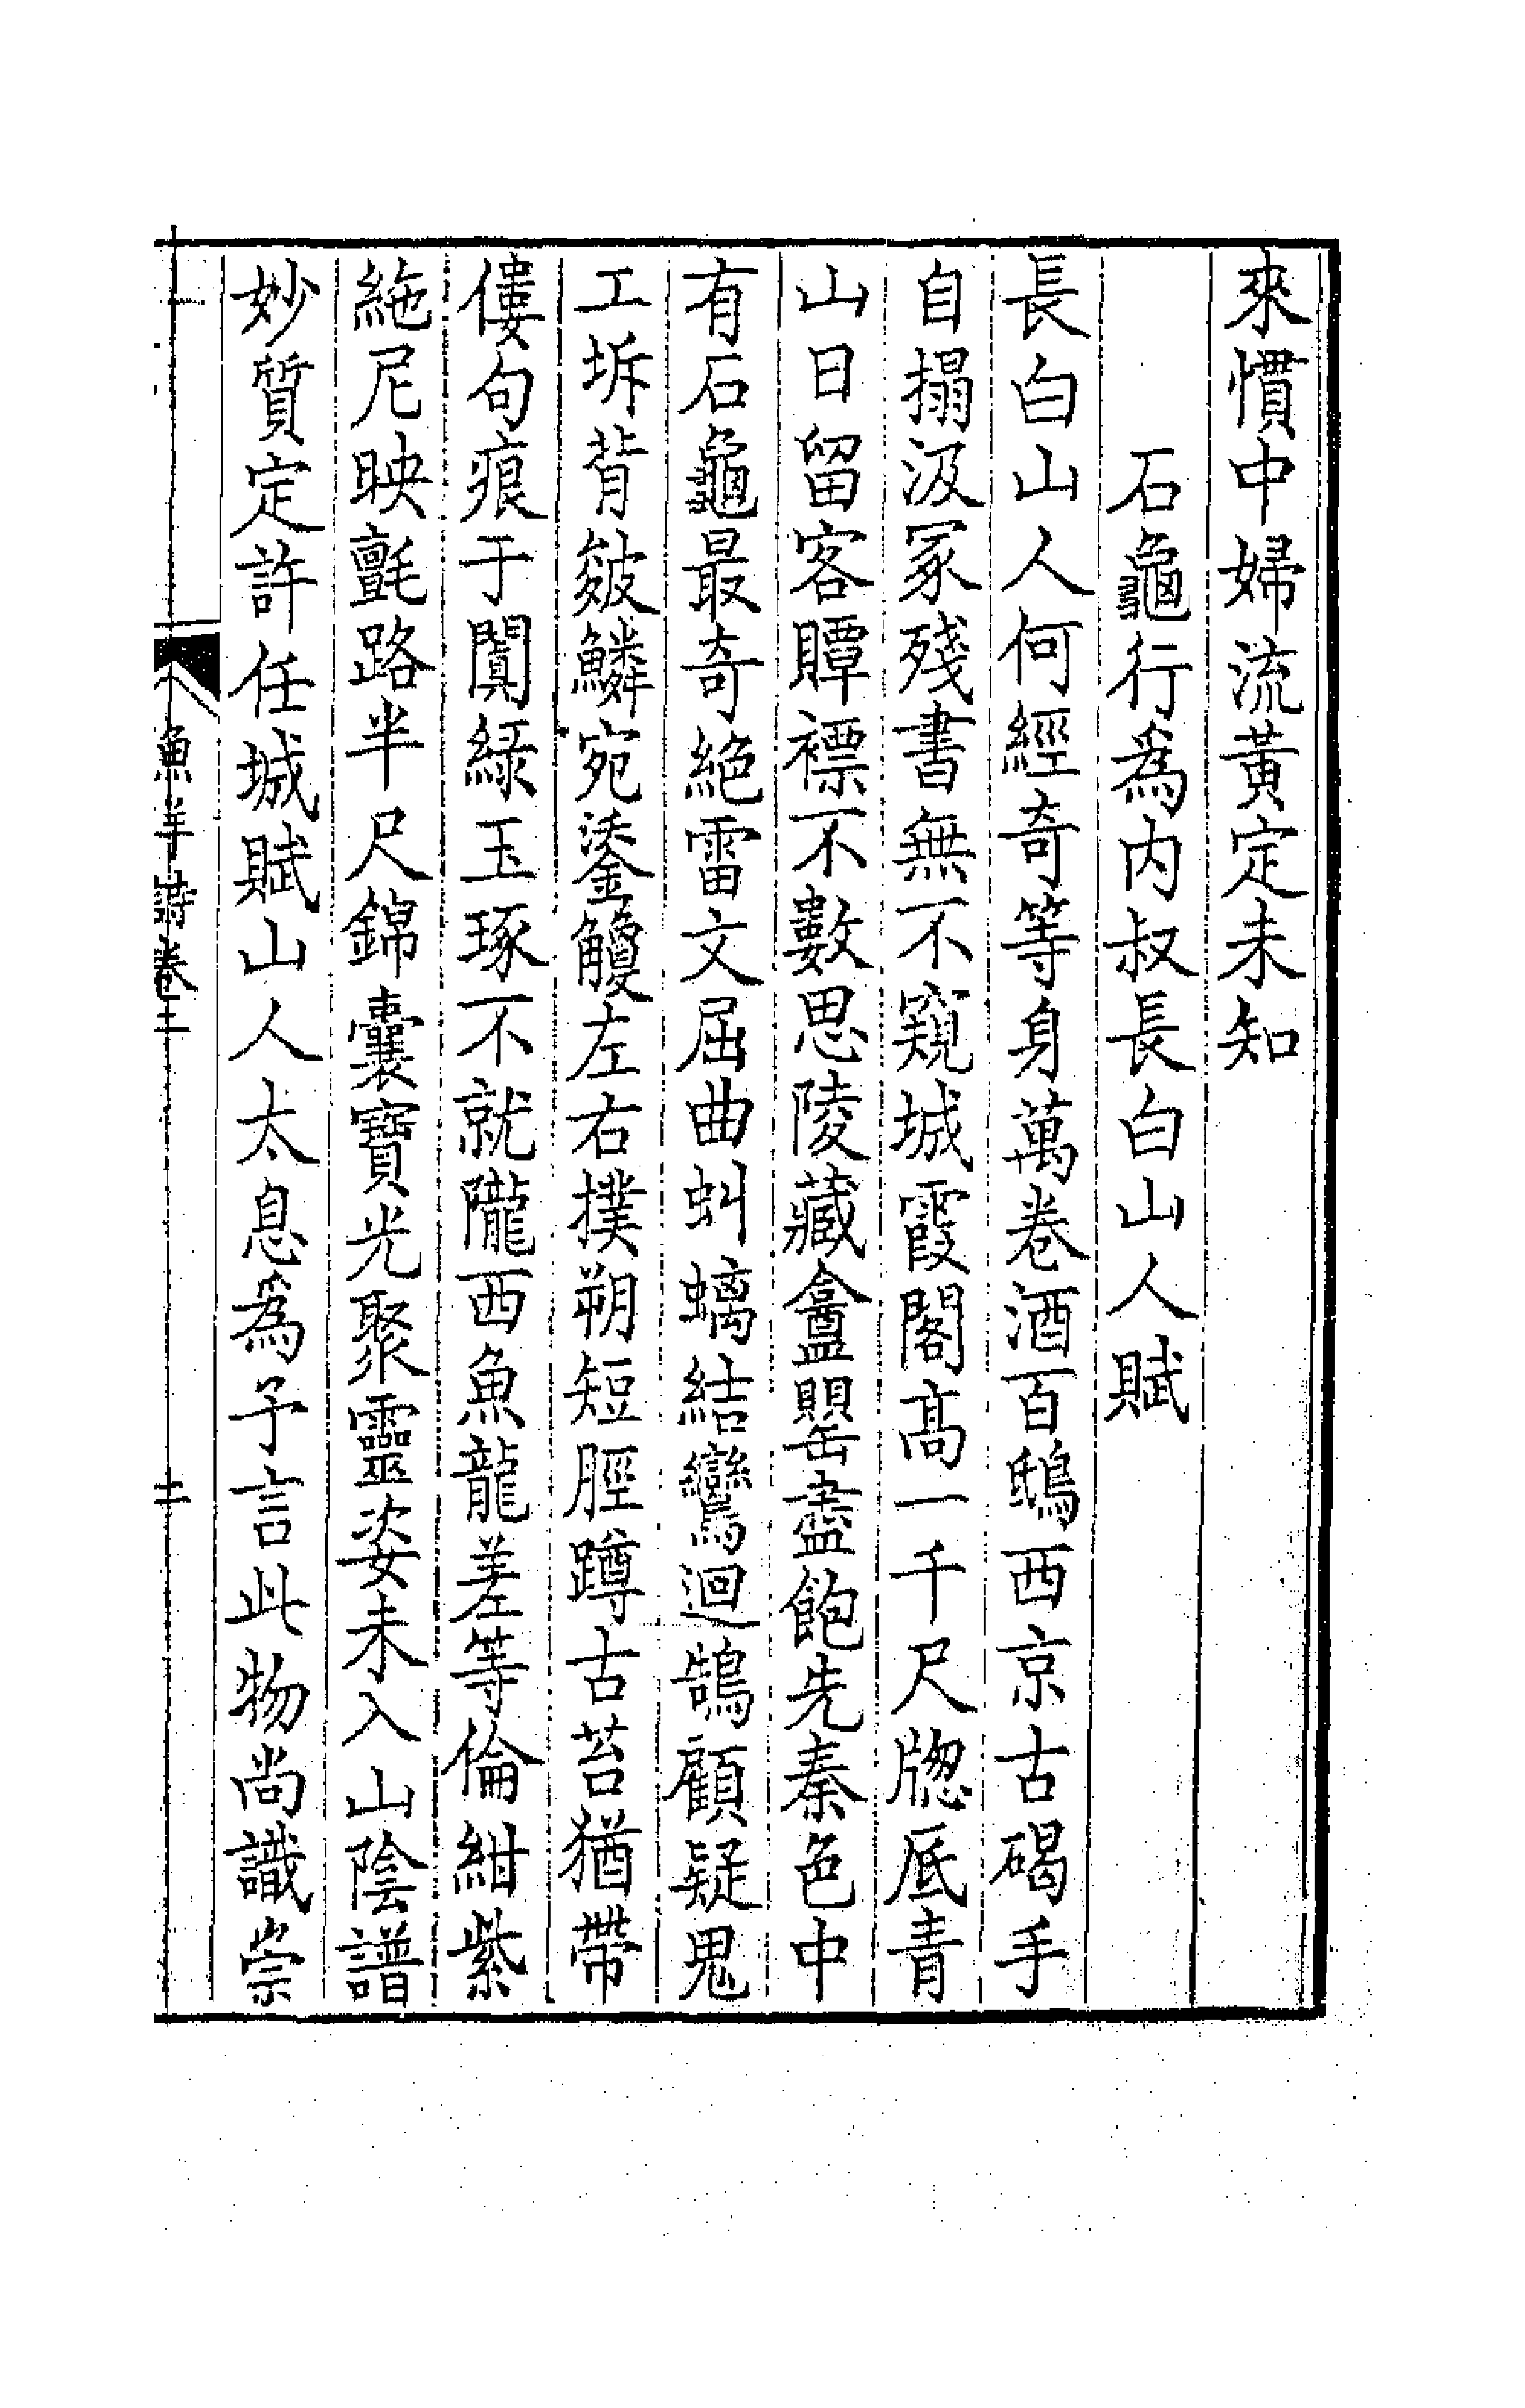 來慣中婦流黃定未知
石龜行爲内叔長白山人賦
長白山人何經奇等身萬卷酒百鴟西京古碣手
自搨汲冢殘書無不窺城霞閣高一千尺牕底青
山日留客贉褾不數思陵藏盦罌盡飽先秦色中
有石龜最奇絕雷文屈曲虯螭結鸞迴鵠顧疑鬼
工坼背皴鱗宛鋈觼左右撲朔短脛蹲古苔猶帶
僂句痕于闐綠玉琢不就隴西魚龍差等倫紺紫
絁尼映氈路半尺錦囊寶光聚靈姿未入山陰譜
妙質定許任城賦山人太息爲予言此物尚識崇
魚洋詩卷三
十二